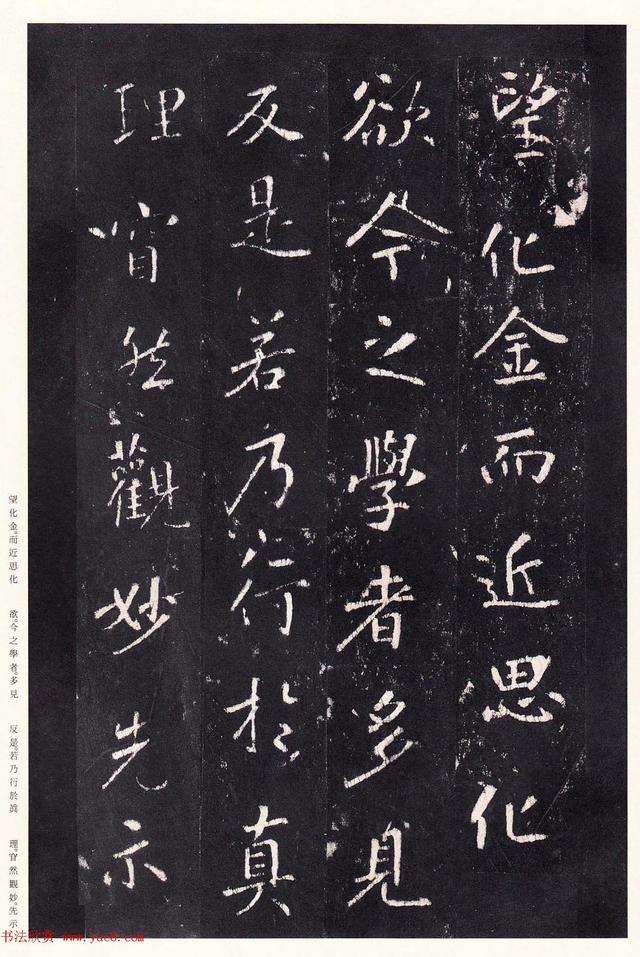 望化金而近思化
欲今之學者多見
反是若乃行於真
理窅然觀妙先示
望化金。而近思化
欲。今之學者。多見
反是。若乃行於眞
理。窅然觀妙。先示
书法欣赏 www.yac8.com